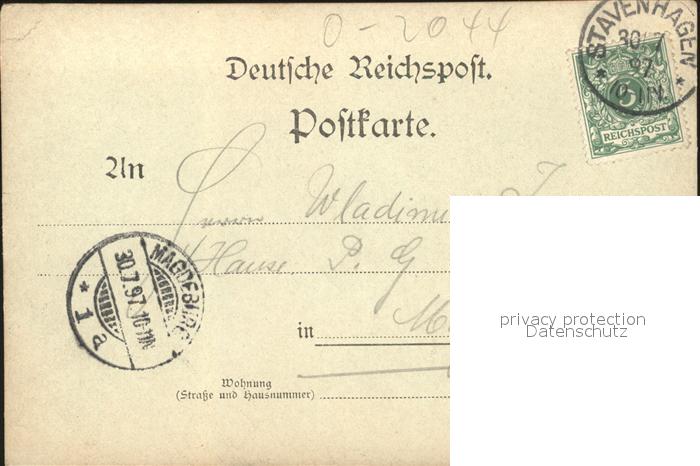 0-2044
STAVENHAGEN
30 7
97
REICHSPOST
5
Deutsche Reichspost.
Postkarte.
An
Herrn Wladimi
Hause P. G
MAGDEBURG
30.7.97.10-11N.
* 1 a
in M
Wohnung
(Straße und Hausnummer)
privacy protection
Datenschutz